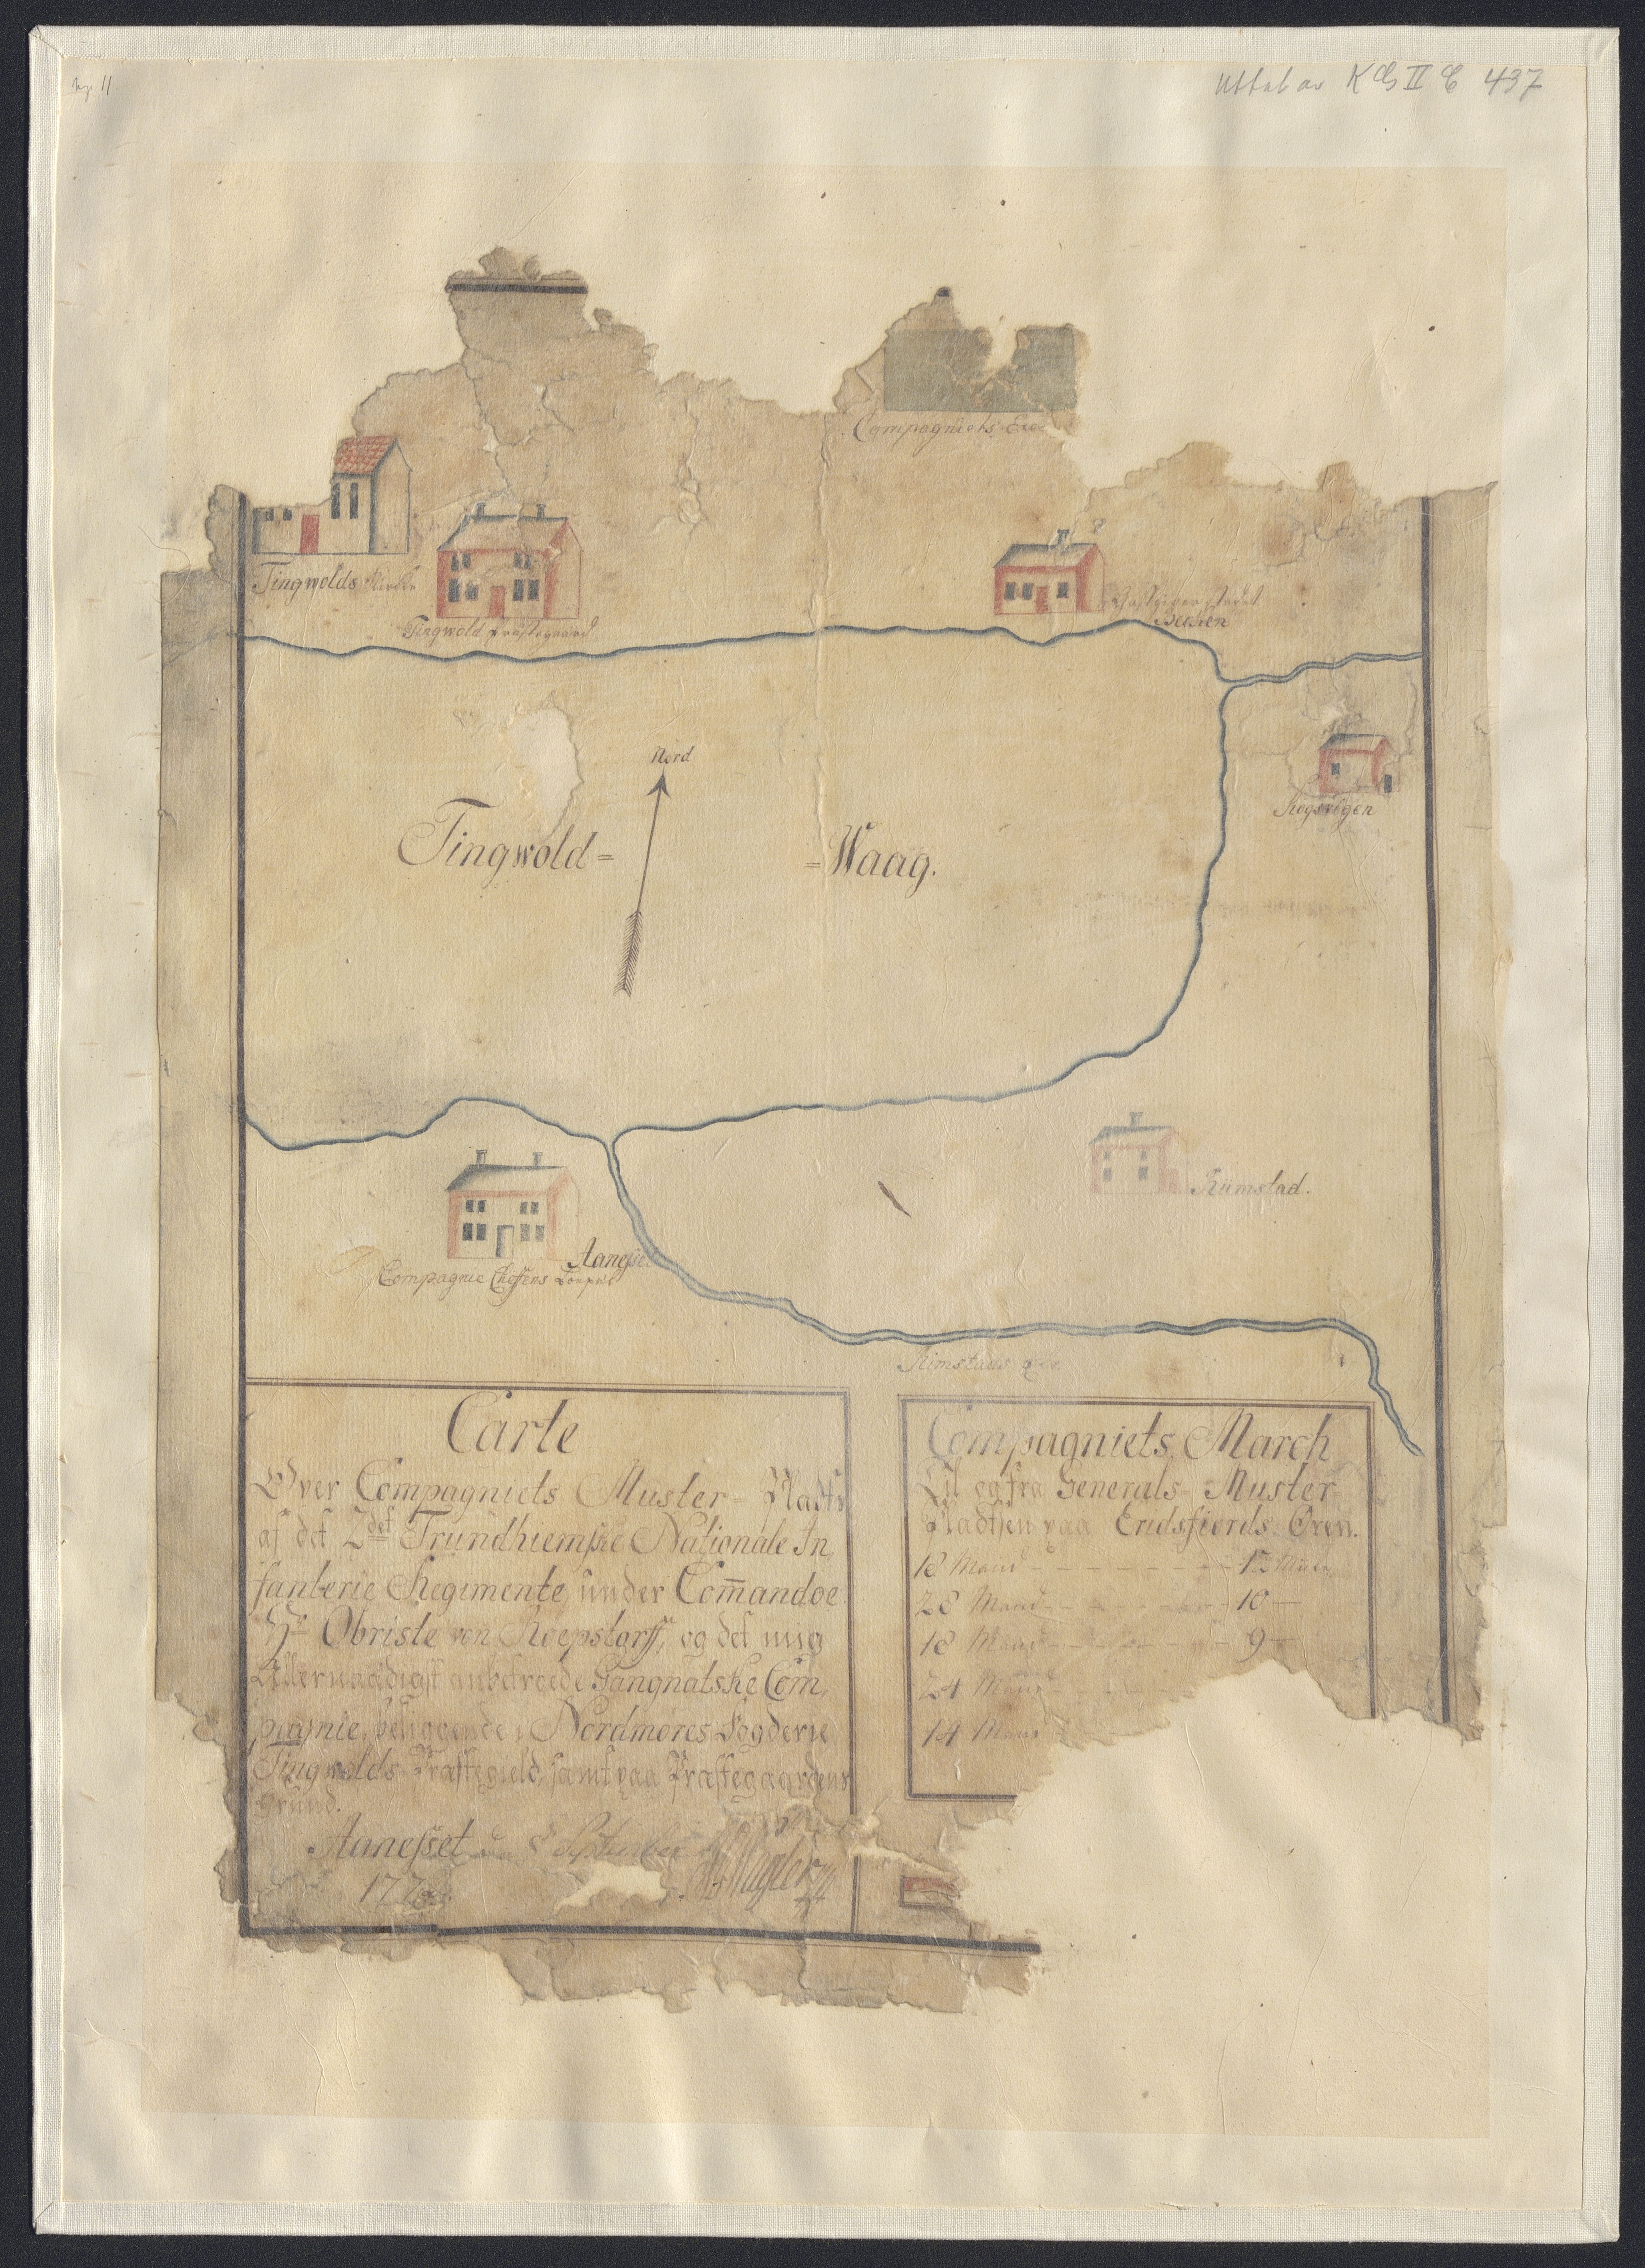 No. 11
Uttat av KG II C 437
Compagniets Exe
Tingwolds Kirke
Tingwold Præstegaard
Giestgiver stædet
Nord
Kogsvigen
Tingwold= =Waag.
Rimstad.
Aanesse
Compagnie Cheffens
Rimstads
Carte
Over Compagniets Muster-Plads
af det 2det Trundhiemske Nationale In
fanterie Regimente, under Com̄andoe
Hr Obriste von Roepstorff, og det mig
Allernaadigst anbetroede Sangnatske Com,
pagnie, beliggende i Nordmøres Fogderie
Tingwolds Præstegield, samt paa Præstegaardens
Grund.
Aanesset den 8 September
177
Compagniets March
Til og fra Generals-Muster
Pladsen paa Eridsfiords Øren.
18 Mand - - - - - - - -
28 Mand - - - - - 10 —
18 Mand - - - - - 9 —
24 Mand - - -
14 Mand